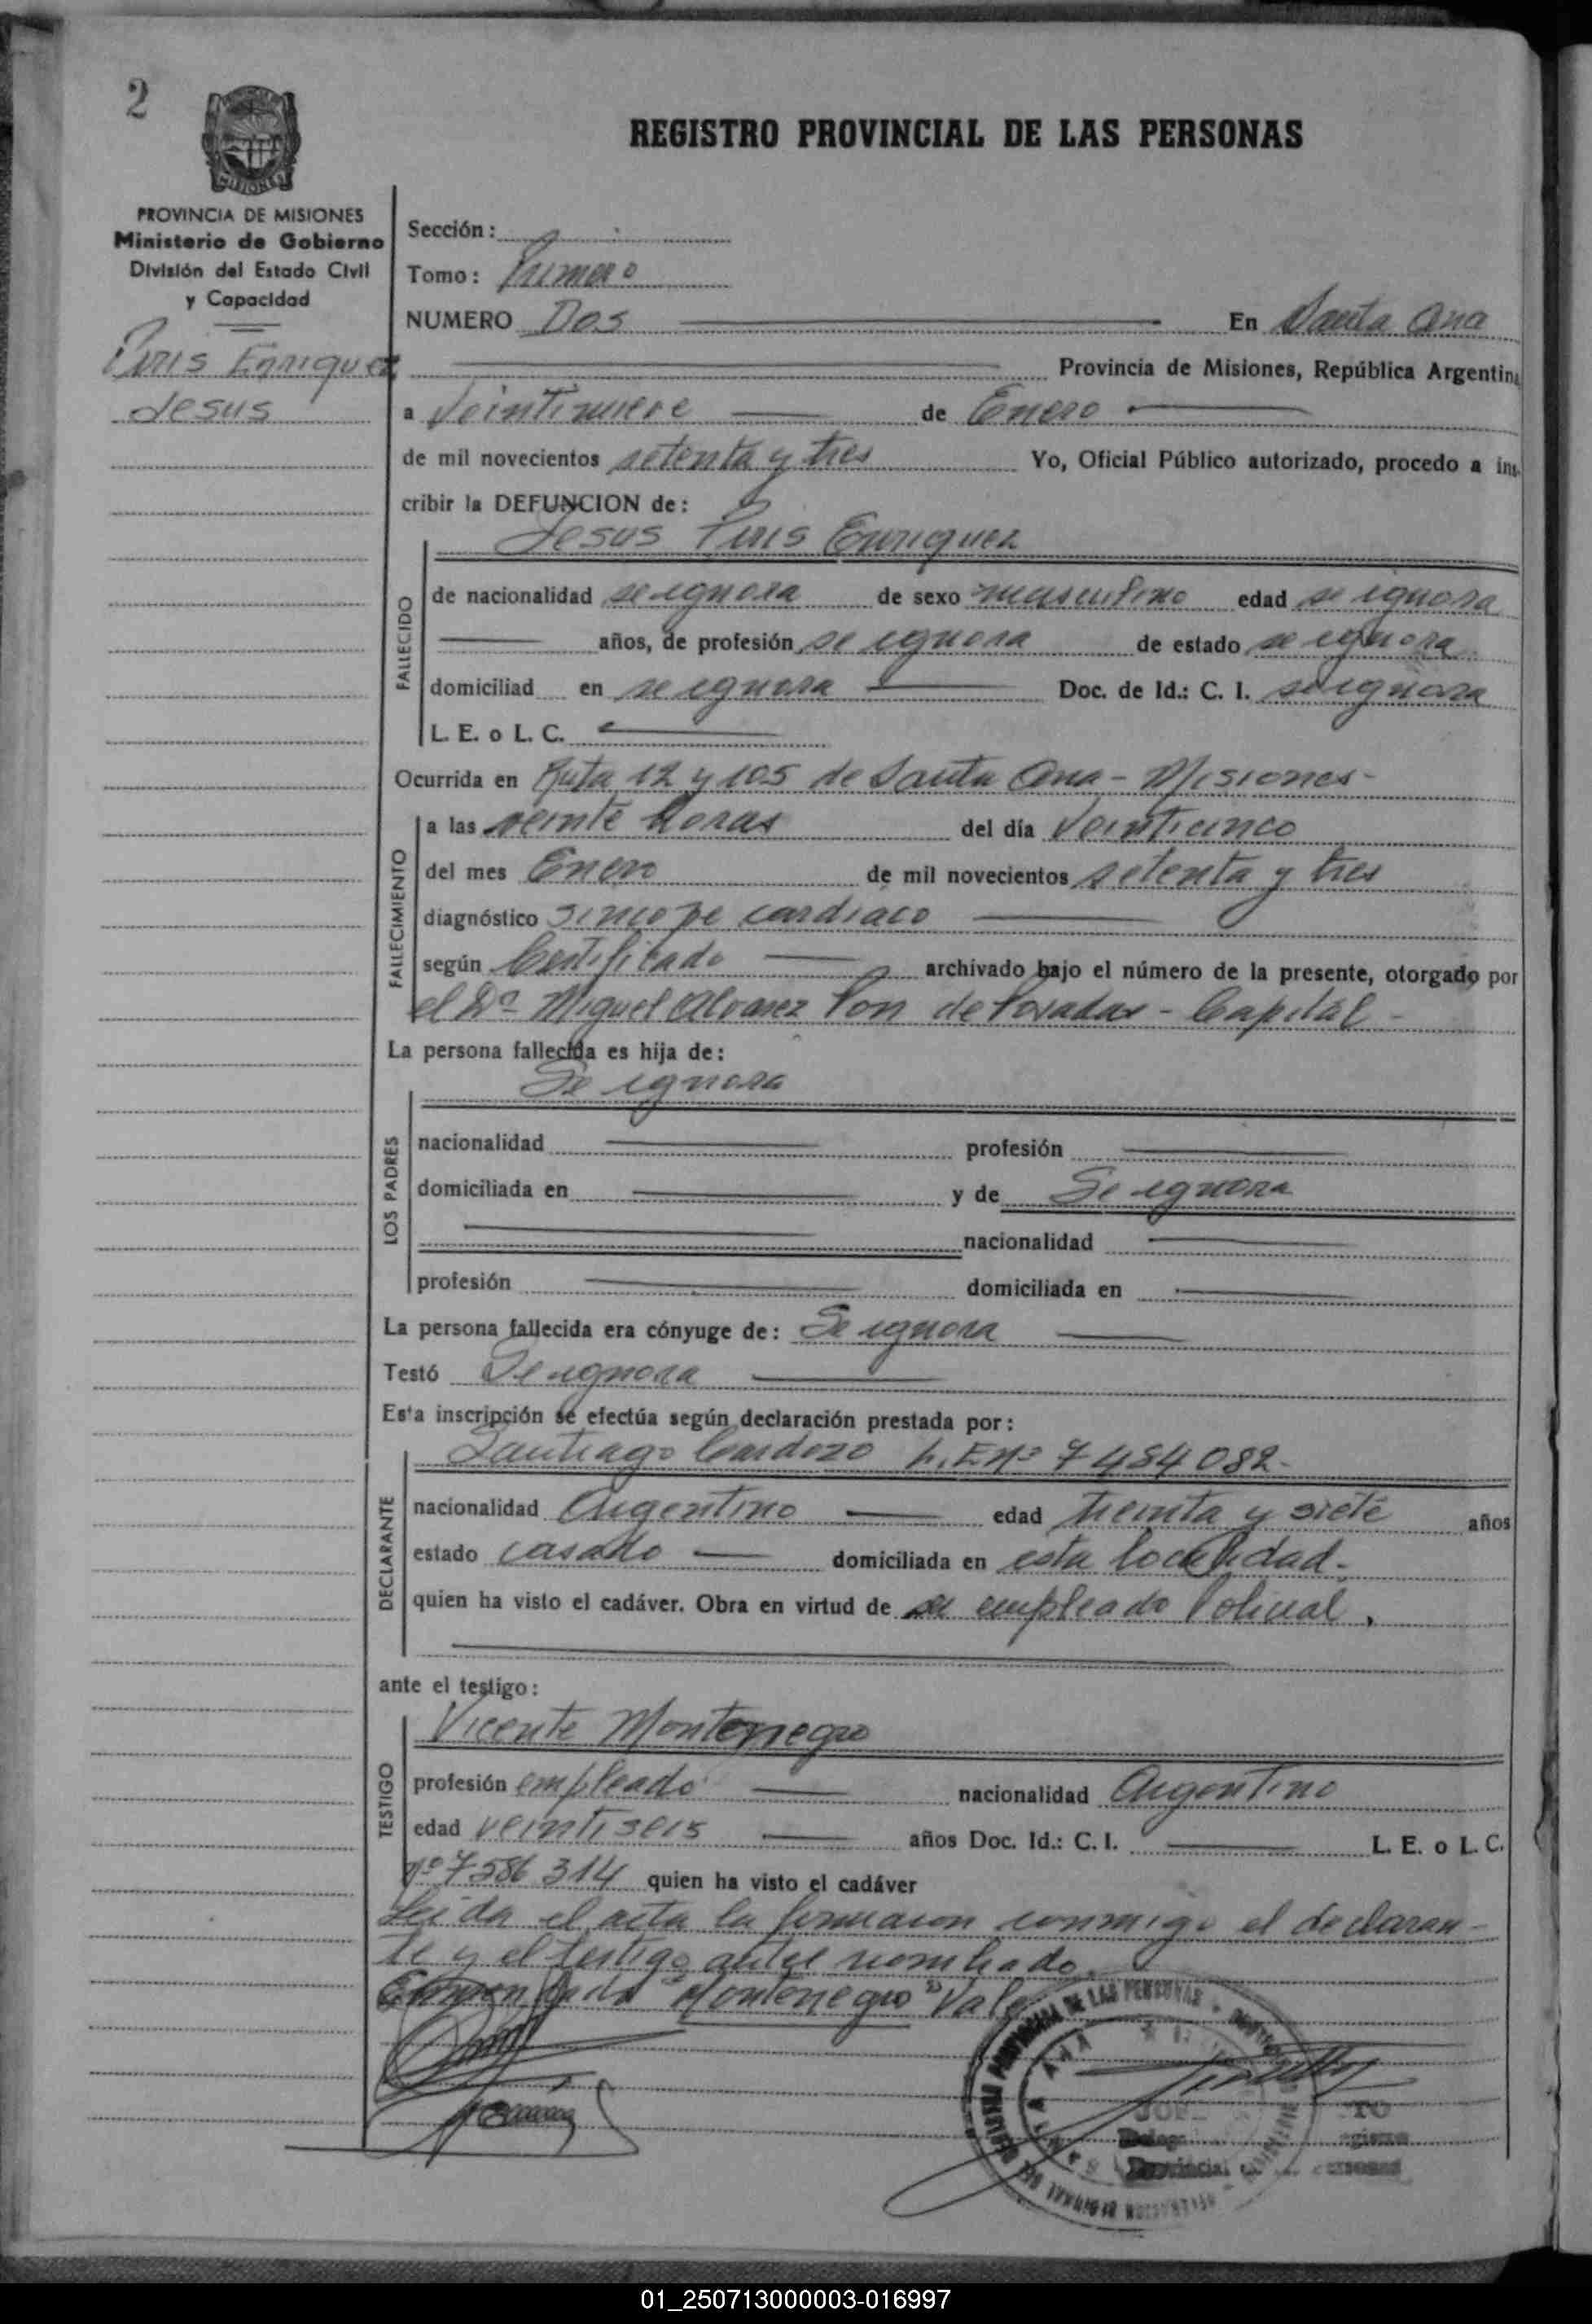 2
REGISTRO PROVINCIAL DE LAS PERSONAS
MISIONES
PROVINCIA DE MISIONES
Ministerio de Gobierno
División del Estado Civil
y Capacidad
Piris Enriquez
Jesus
Sección:
Tomo: Primero
NUMERO Dos En Santa Ana
Provincia de Misiones, República Argentina
a Veintinueve de Enero
de mil novecientos setenta y tres Yo, Oficial Público autorizado, procedo a ins-
cribir la DEFUNCION de:
Jesus Piris Enriquez
FALLECIDO
de nacionalidad se ignora de sexo masculino edad se ignora
años, de profesión se ignora de estado se ignora
domiciliad en se ignora Doc. de Id.: C. I. se ignora
L. E. o L. C.
Ocurrida en Ruta 12 y 105 de Santa Ana - Misiones -
FALLECIMIENTO
a las veinte horas del día Veinticinco
del mes Enero de mil novecientos setenta y tres
diagnóstico sincope cardiaco
según Certificado archivado bajo el número de la presente, otorgado por
el Dr Miguel Alvarez Pon de Posadas - Capital -
La persona fallecida es hija de:
Se ignora
LOS PADRES
nacionalidad profesión
domiciliada en y de Se ignora
nacionalidad
profesión domiciliada en
La persona fallecida era cónyuge de: Se ignora
Testó Se ignora
Esta inscripción se efectúa según declaración prestada por:
Santiago Cardozo L. E Nº 7484082-
DECLARANTE
nacionalidad Argentino edad treinta y siete años
estado casado domiciliada en esta localidad.
quien ha visto el cadáver. Obra en virtud de su empleado Policial.
ante el testigo:
Vicente Montenegro
TESTIGO
profesión empleado nacionalidad Argentino
edad veintiseis años Doc. Id.: C. I. L. E. o L. C.
Nº 7586 314 quien ha visto el cadáver
Leida el acta la firmaron conmigo el declaran-
te y el testigo antes nombrado.
Enmendado "Montenegro" Vale
DE LAS PERSONAS
Provincial
01_250713000003-016997